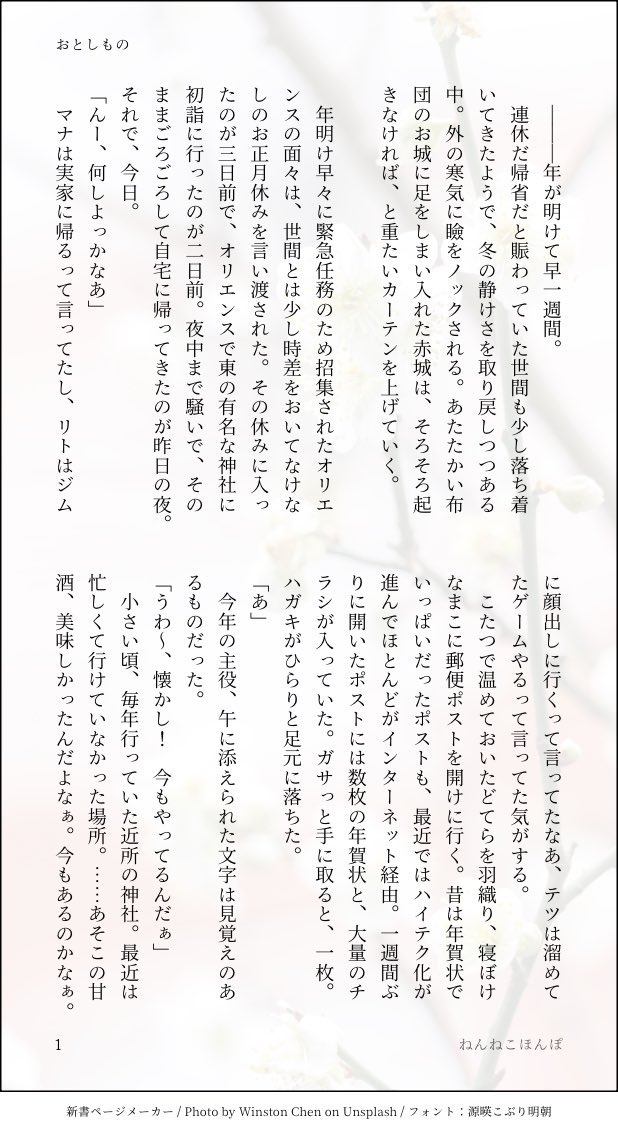 おとしもの
――年が明けて早一週間。
連休だ帰省だと賑わっていた世間も少し落ち着
いてきたようで、冬の静けさを取り戻しつつある
中。外の寒気に瞼をノックされる。あたたかい布
団のお城に足をしまい入れた赤城は、そろそろ起
きなければ、と重たいカーテンを上げていく。
年明け早々に緊急任務のため招集されたオリエ
ンスの面々は、世間とは少し時差をおいてなけな
しのお正月休みを言い渡された。その休みに入っ
たのが三日前で、オリエンスで東の有名な神社に
初詣に行ったのが二日前。夜中まで騒いで、その
ままごろごろして自宅に帰ってきたのが昨日の夜。
それで、今日。
「んー、何しよっかなあ」
マナは実家に帰るって言ってたし、リトはジム
に顔出しに行くって言ってたなあ、テツは溜めて
たゲームやるって言ってた気がする。
こたつで温めておいたどてらを羽織り、寝ぼけ
なまこに郵便ポストを開けに行く。昔は年賀状で
いっぱいだったポストも、最近ではハイテク化が
進んでほとんどがインターネット経由。一週間ぶ
りに開いたポストには数枚の年賀状と、大量のチ
ラシが入っていた。ガサっと手に取ると、一枚。
ハガキがひらりと足元に落ちた。
「あ」
今年の主役、午に添えられた文字は見覚えのあ
るものだった。
「うわ〜、懐かし！　今もやってるんだぁ」
小さい頃、毎年行っていた近所の神社。最近は
忙しくて行けていなかった場所。……あそこの甘
酒、美味しかったんだよなぁ。今もあるのかなぁ。
1
ねんねこほんぽ
新書ページメーカー / Photo by Winston Chen on Unsplash / フォント：源暎こぶり明朝